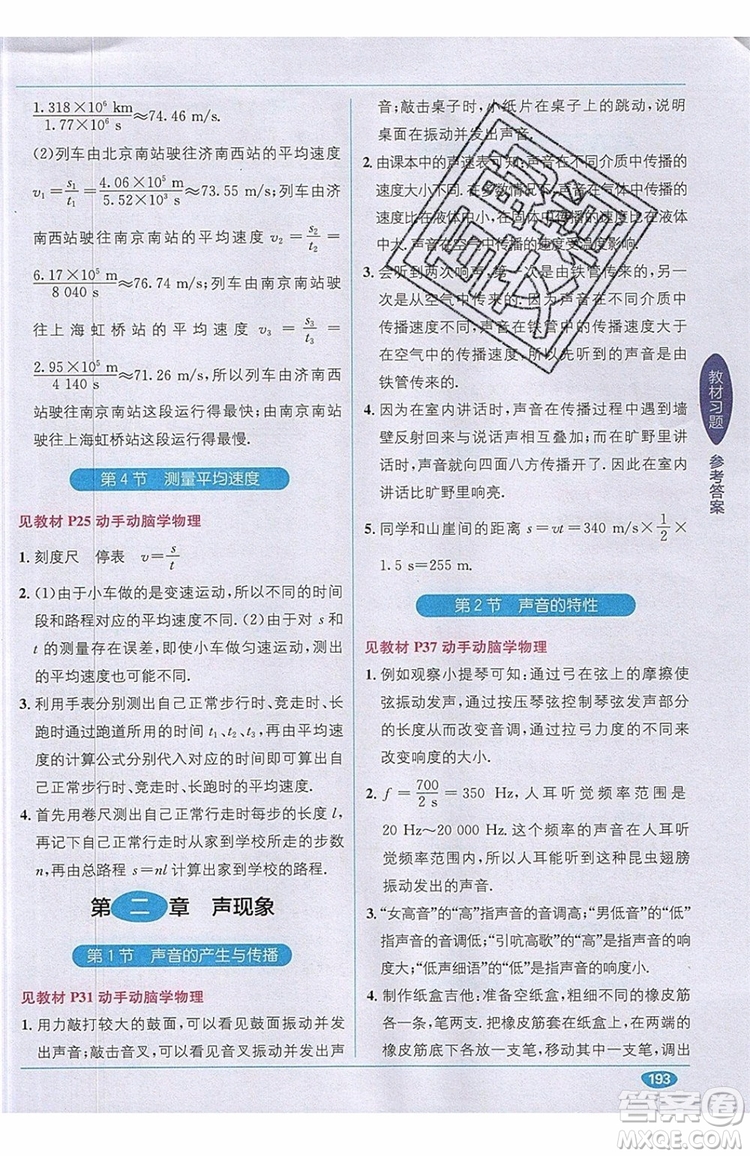 1.318×10⁶ km/1.77×10⁴ s≈74.46 m/s.
(2)列车由北京南站驶往济南西站的平均速度
v₁=s₁/t₁=4.06×10⁵ m/5.52×10³ s≈73.55 m/s;列车由济
南西站驶往南京南站的平均速度 v₂=s₂/t₂=
6.17×10⁵ m/8 040 s≈76.74 m/s;列车由南京南站驶
往上海虹桥站的平均速度 v₃=s₃/t₃=
2.95×10⁵ m/4 140 s≈71.26 m/s,所以,列车由济南西
站驶往南京南站这段运行得最快;由南京南站驶
往上海虹桥站这段运行得最慢.
第4节 测量平均速度
见教材 P25 动手动脑学物理
1. 刻度尺 停表 v=s/t
2. (1)由于小车做的是变速运动,所以不同的时间
段和路程对应的平均速度不同.(2)由于小车
的测量存在误差,即使小车做匀速运动,测出
的平均速度也可能不同.
3. 利用手表分别测出自己正常步行时、竞走时、长
跑时通过跑道所用的时间 t₁、t₂、t₃,由平均速
度的计算公式分别代入对应的时间即可算出自
己正常步行、竞走、长跑的平均速度.
4. 首先用卷尺测出自己正常步行时每步的长度 l,
再记下自己正常步行时从家到学校所走的步数
n,由总路程 s=nl 计算出家到学校的路程.
第二章 声现象
第1节 声音的产生与传播
见教材 P31 动手动脑学物理
1. 用力敲打较大的鼓面,可以看见鼓面振动并发
出声音;敲击音叉,可以看见音叉振动并发出声
音;敲击桌子时,小纸片在桌子上的跳动,说明
桌面在振动并发出声音.
2. 由课本中的声速表可知:声音在不同介质中传播的
速度大小不同.在多数情况下,声音在气体中传播的
速度比液体中小,在固体中传播的速度比在液体
中大.声音在空气中传播的速度受温度影响.
3. 会听到两次响声.第一次是由铁管传来的,另一
次是从空气中传来的.因为声音在不同介质中
传播速度不同,声音在铁管中的传播速度大于
在空气中的传播速度,所以先听到的声音是由
铁管传播的.
4. 因为在室内讲话时,声音在传播过程中遇到墙
壁反射回来与原声相互叠加;而在旷野里讲
话时,声音向四面八方传播开了,所以,在室内
讲话声音比旷野里响亮.
5. 同学和山崖间的距离 s=vt=340 m/s×1/2×
1.5 s=255 m.
第2节 声音的特性
见教材 P37 动手动脑学物理
1. 例如观察小提琴可知:通过弓在弦上的摩擦使
弦振动发声,通过按压琴弦控制琴弦发声部分
的长度从而改变音调,通过拉弓力度的不同来
改变响度的大小.
2. f=700/2 s=350 Hz,人耳听觉频率范围是
20 Hz~20 000 Hz.这个频率的声音在人耳听
觉频率范围内,所以人耳能听到这种昆虫翅膀
振动发出的声音.
3. “女高音”的“高”指声音的音调高;“男低音”的“低”
指声音的音调低;“引吭高歌”的“高”是指声音响度
大;“低声细语”的“低”是指声音响度小.
4. 制作纸盒吉他:准备空纸盒,粗细不同的橡皮筋
各一条,笔两支.把橡皮筋套在纸盒上,在两端的
橡皮筋底下各放一支笔,移动其中一支笔,调出
教材习题
参考答案
193
答案圈
MXQE.COM